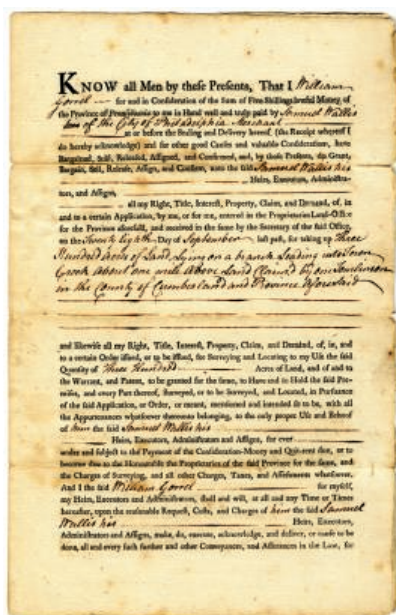 KNOW all Men by these Presents, That I William
Gorrel — for and in Consideration of the Sum of Five Shillings lawful Money of
the Province of Pennsylvania to me in Hand well and truly paid by Samuel Wallis
of the City of Philadelphia Merchant
at or before the Sealing and Delivery hereof (the Receipt whereof I
do hereby acknowledge) and for other good Causes and valuable Consideration, have
Bargained, Sold, Released, Assigned, and Confirmed, and, by these Presents, do Grant,
Bargain, Sell, Release, Assign, and Confirm, unto the said Samuel Wallis his
Heirs, Executors, Administra-
tors, and Assigns,
all my Right, Title, Interest, Property, Claim, and Demand, of, in
and to a certain Application, by me, or for me, entered in the Proprietaries Land-Office
for the Province aforesaid, and received in the same by the Secretary of the said Office,
on the Twenty Eighth Day of September last past, for taking up Three
Hundred Acres of Land, Lying on a branch Leading into
Creek About one mile Above Land Claim'd by one Tomlinson
in the County of Cumberland and Province Aforesaid
and likewise all my Right, Title, Interest, Property, Claim, and Demand, of, in, and
to a certain Order issued, or to be issued, for Surveying and Locating to my Use the said
Quantity of Three Hundred Acres of Land, and of and to
the Warrant, and Patent, to be granted for the same, to Have and to Hold the said Pre-
mises, and every Part thereof, Surveyed, or to be Surveyed, and Located, in Pursuance
of the said Application, or Order, or meant, mentioned and intended so to be, with all
the Appurtenances whatsoever thereunto belonging, to the only proper Use and Behoof
of him the said Samuel Wallis his
Heirs, Executors, Administrators and Assigns, for ever
under and subject to the Payment of the Consideration-Money and Quit-rent due, or to
become due to the Honourable the Proprietaries of the said Province for the same, and
the Charges of Surveying, and all other Charges, Taxes, and Assessments whatsoever.
And I the said William Gorrel for myself,
my Heirs, Executors and Administrators, shall and will, at all and any Time or Times
hereafter, upon the reasonable Request, Costs, and Charges of him the said Samuel
Wallis his Heirs, Executors,
Administrators and Assigns, make, do, execute, acknowledge, and deliver, or cause to be
done, all and every such further and other Conveyances, and Assurances in the Law, for